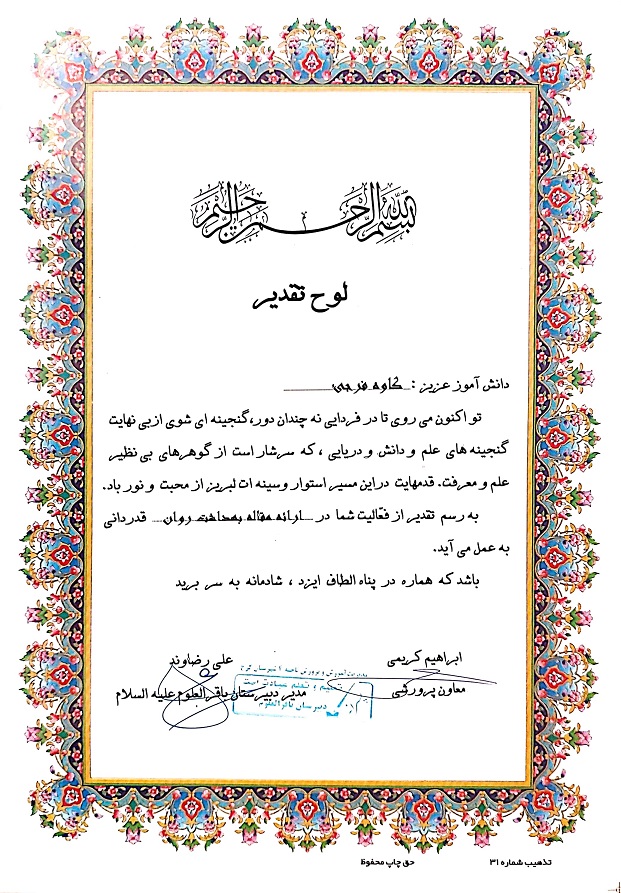 بسم الله الرحمن الرحیم
لوح تقدیر
دانش آموز عزیز : کاوه فرجی
تو اکنون می روی تا در فردایی نه چندان دور، گنجینه ای شوی از بی نهایت
گنجینه های علم و دانش و دریایی ، که سرشار است از گوهرهای بی نظیر
علم و معرفت. قدمهایت در این مسیر استوار و سینه ات لبریز از محبت و نور باد.
به رسم تقدیر از فعّالیت شما در ارائه مقاله بهداشت روان قدردانی
به عمل می آید.
باشد که هماره در پناه الطاف ایزد ، شادمانه به سر برید
ابراهیم کریمی
علی رضاوند
معاون پرورشی
مدیر دبیرستان باقرالعلوم علیه السلام
مدیریت آموزش و پرورش ناحیه شهرستان
دبیرستان باقرالعلوم
تذهیب شماره ۳۱
حق چاپ محفوظ